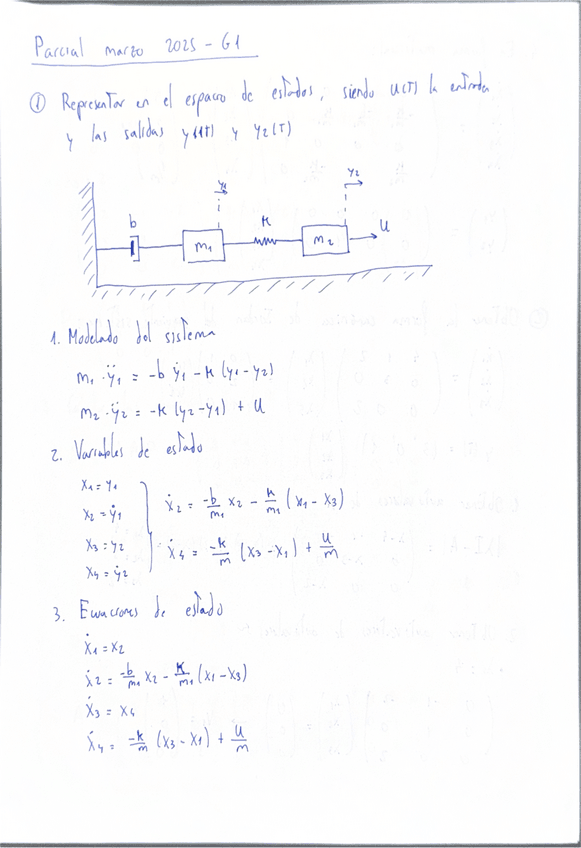 Parcial marzo 2025 - G1
① Representar en el espacio de estados, siendo u(t) la entrada
y las salidas y1(t) y y2(t)
y1
y2
b
m₁
k
m₂
u
1. Modelado del sistema
m₁ · ÿ₁ = -b ẏ₁ - k (y₁ - y₂)
m₂ · ÿ₂ = -k (y₂ - y₁) + u
2. Variables de estado
x₁ = y₁
x₂ = ẏ₁
x₃ = y₂
x₄ = ẏ₂
ẋ₂ = -b/m₁ x₂ - k/m₁ (x₁ - x₃)
ẋ₄ = -k/m (x₃ - x₁) + u/m
3. Ecuaciones de estado
ẋ₁ = x₂
ẋ₂ = -b/m₁ x₂ - k/m₁ (x₁ - x₃)
ẋ₃ = x₄
ẋ₄ = -k/m (x₃ - x₁) + u/m